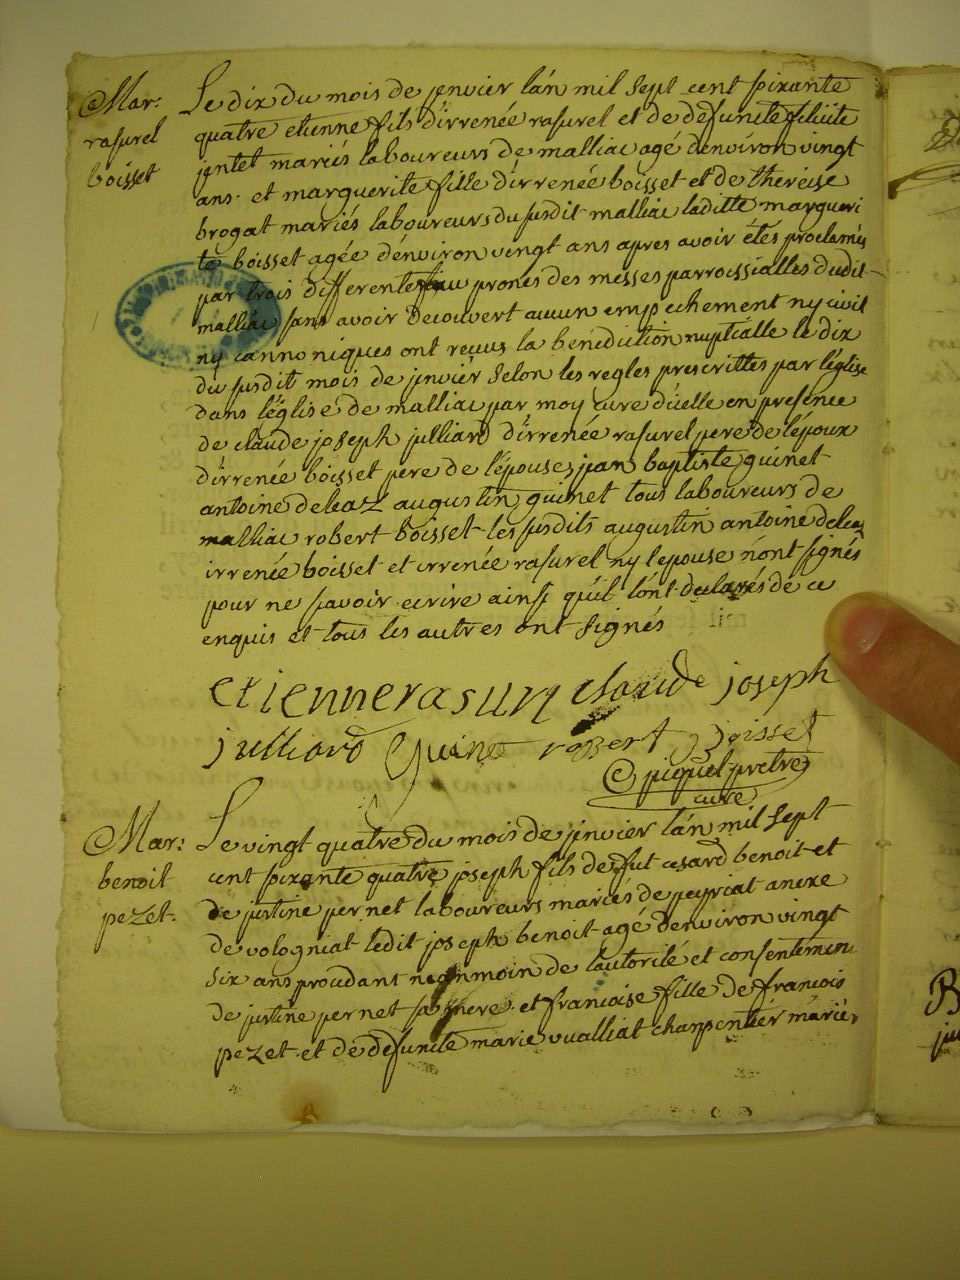 Mar:
rasurel
boisset
Le dix du mois de jenvier lán mil sept cent soixante
quatre etienne fils dirrenée rasurel et de defuncte felicite
jentet mariés laboureurs de malliac agé denviron vingt
ans. et marguerite fille dirrenée boisset et de therèise
brogat mariés laboureurs du susdit malliac laditte margueri
te boisset agée dénviron vingt ans apres avoir étés proclamés
par trois differentes fois au prones des messes parroissialles dudit
malliac sans avoir decouvert aucun empechement ny civil
ny cannoniques ont reçus la bénédiction nuptialle le dix
du susdit mois de jenvier selon les regles prescrittes par léglise
dans léglise de malliac par moy cure dicelle en presence
de claude joseph julliard dirrenée rasurel pere de lépoux
dirrenée boisset pere de lépouse, jean baptiste guinet
antoine deleaz augustin guinet tous laboureurs de
malliac robert boisset les susdits augustin antoine deleaz
irrenée boisset et irrenée rasurel ny lepouse nónt signés
pour ne savoir ecrire ainsi quíl lónt declarés de ce
enquis et tous les autres ont signés
etienne rasurel claude joseph
julliard Guinet robert boisset
piquet pretre
cure
Mar:
benoit
pezet.
Le vingt quatre du mois de jenvier lán mil sept
cent soixante quatre joseph fils de fut cesard benoit et
de justine pernet laboureurs mariés de peyriat anexe
de volognat ledit joseph benoit agé denviron vingt
six ans procedant neanmoin de lautorité et consentemen
de justine pernet sa mere. et francoise fille de francois
pezet et de defuncte marie vualliat charpentiér mariés